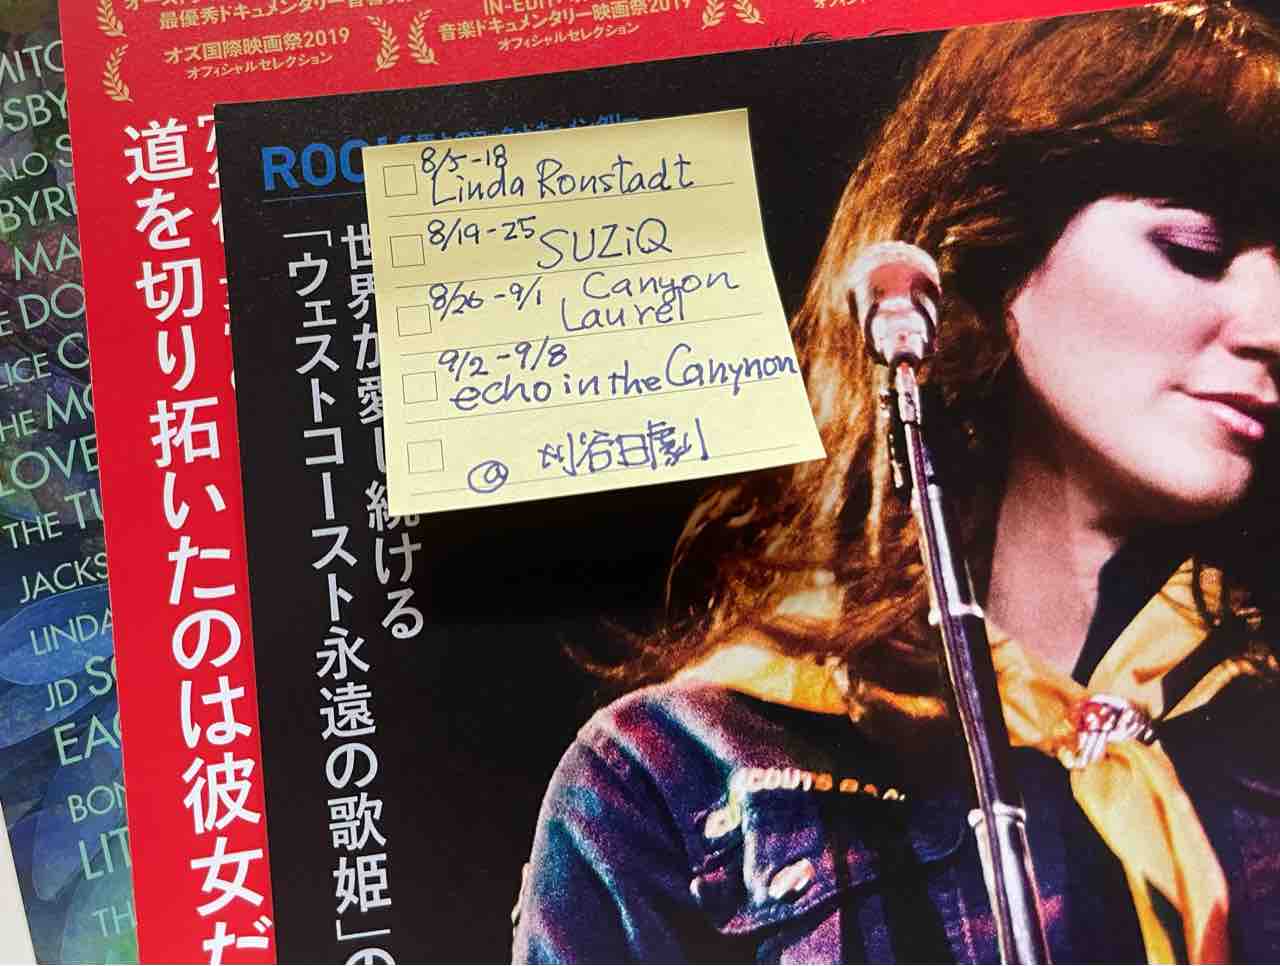 オズ国際映画祭2019
オフィシャルセレクション
音楽ドキュメンタリー映画祭2019
オフィシャルセレクション
道を切り拓いたのは彼女だ
世界が愛し続ける
「ウェストコースト永遠の歌姫」の
8/5-18
Linda Ronstadt
8/19-25 SUZiQ
8/26-9/1 Canyon
Laurel
9/2-9/8
echo in the Canynon
@ 刈谷日劇
MITC
OSBY
BYRD
MA
DO
LICE C
THE MO
LOVE
THE TU
JACKS
LINDA
JD SO
EAG
BON
LIT
TH